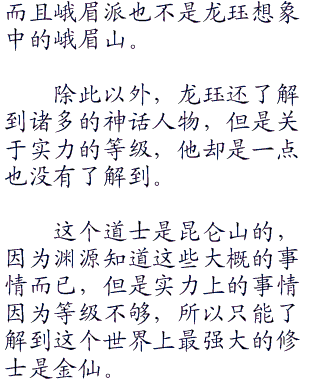 而且峨眉派也不是龙珏想象
中的峨眉山。
除此以外，龙珏还了解
到诸多的神话人物，但是关
于实力的等级，他却是一点
也没有了解到。
这个道士是昆仑山的，
因为渊源知道这些大概的事
情而已，但是实力上的事情
因为等级不够，所以只能了
解到这个世界上最强大的修
士是金仙。